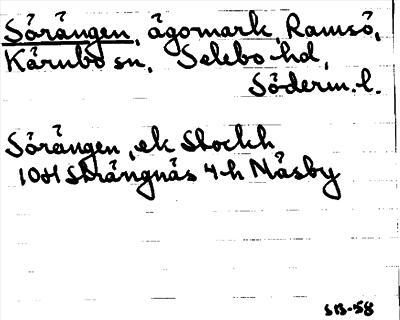 Sörängen, ägomark, Ramsö,
Kärnbo sn, Selebo hd,
Söderm.l.
Sörängen, ek Stockh
10H Strängnäs 4h Näsby
SB-58